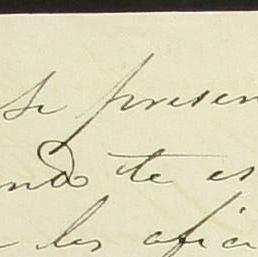 se presen
ndo te es
les afici